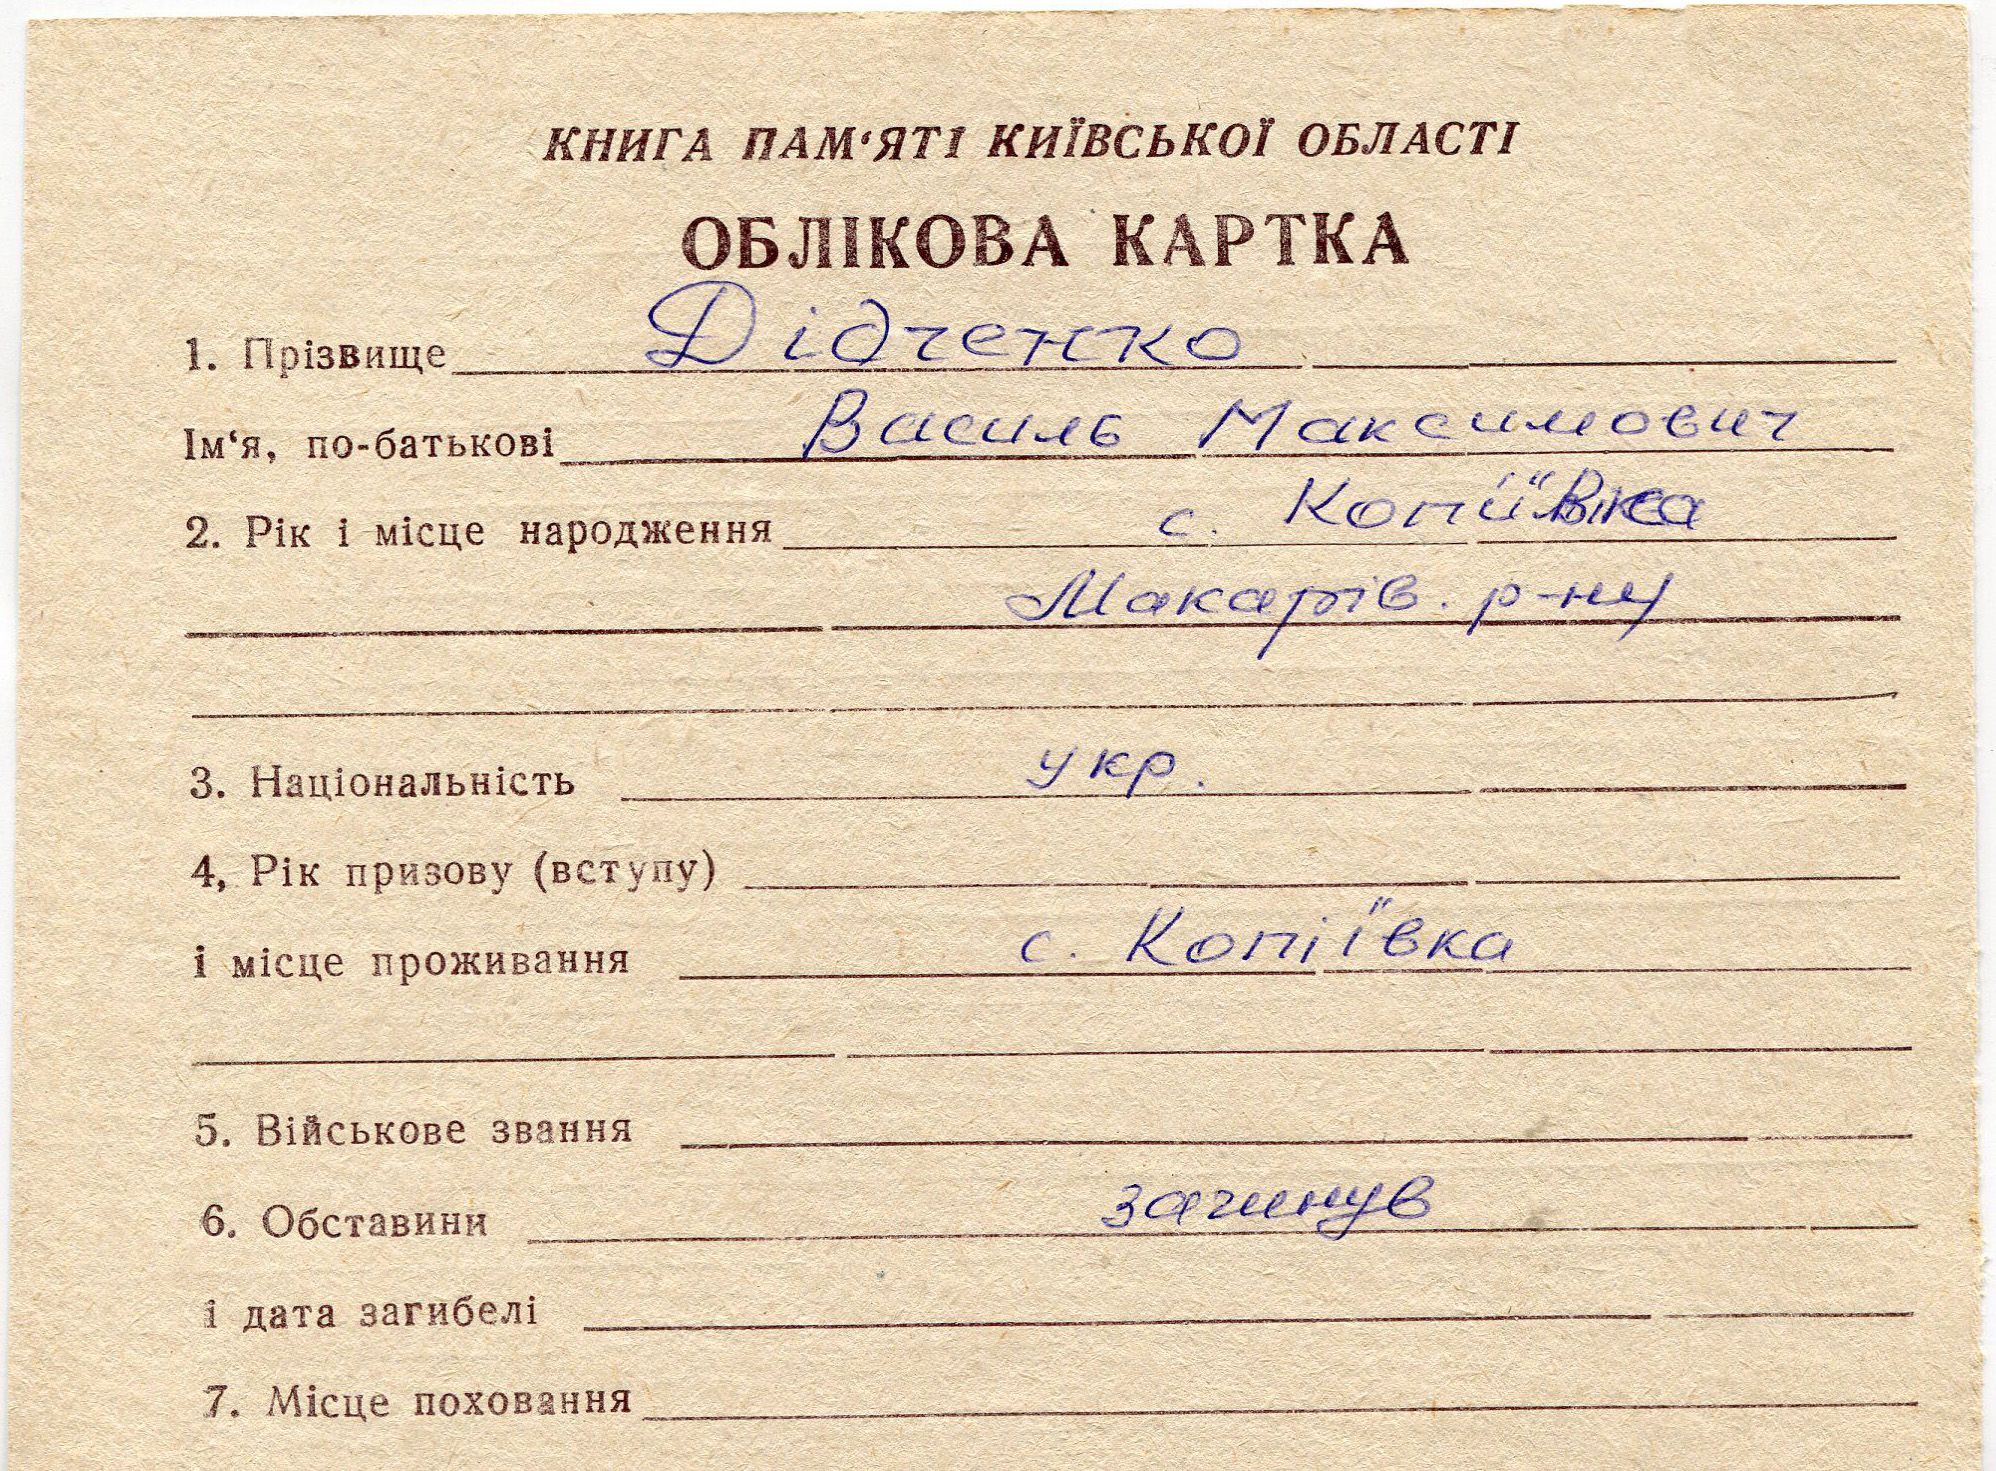 КНИГА ПАМ‘ЯТІ КИЇВСЬКОЇ ОБЛАСТІ
ОБЛІКОВА КАРТКА
1. Прізвище Дідченко
Ім‘я, по-батькові Василь Максимович
2. Рік і місце народження с. Копіївка
Макарів. р-ну
3. Національність укр.
4, Рік призову (вступу)
і місце проживання с. Копіївка
5. Військове звання
6. Обставини загинув
і дата загибелі
7. Місце поховання